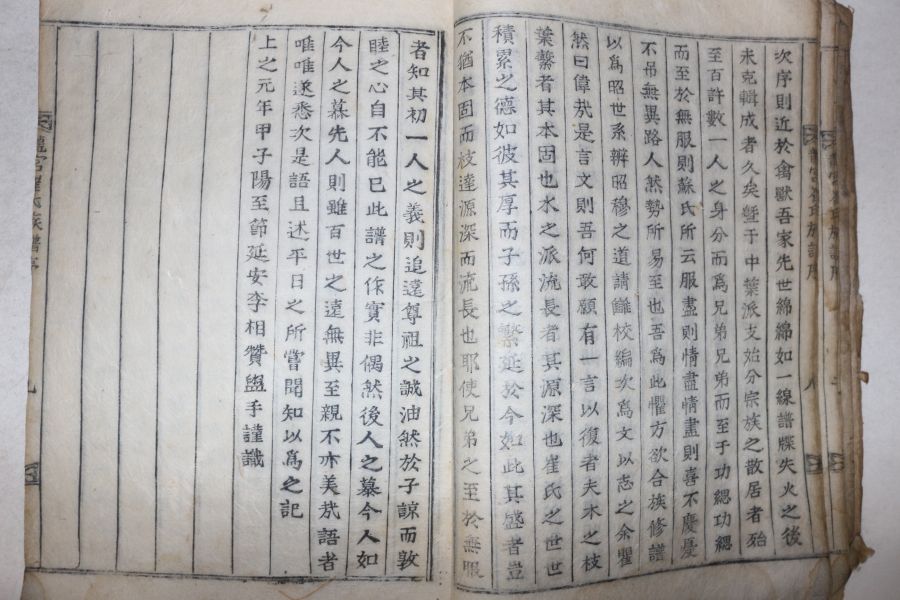 次序則近於禽獸吾家先世綿綿如一線譜牒失火之後
未克輯成者久矣曁于中葉派支始分宗族之散居者殆
至百許數一人之身分而爲兄弟而至于功緦功緦
而至於無服則蘇氏所云服盡則情盡情盡則喜不慶憂
不吊無異路人然勢所易至也吾爲此懼方欲合族修譜
以爲昭世系辨昭穆之道請讎校編次爲文以志之余瞿
然曰偉㢤是言文則吾何敢願有一言以復者夫木之枝
葉繁者其本固也水之派流長者其源深也崔氏之世世
積累之德如彼其厚而子孫之繁延於今如此其盛者豈
不猶本固而枝達源深而流長也耶使兄弟之至於無服
者知其初一人之義則追遠尊祖之誠油然於子諒而敦
睦之心自不能已此譜之作實非偶然後人之慕今人如
今人之慕先人則雖百世之遠無異至親不亦美㢤語者
唯唯遂悉次是語且述平日之所嘗聞知以爲之記
上之元年甲子陽至節延安李相贊盥手謹識